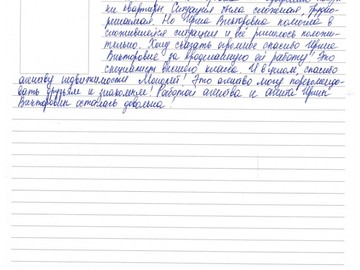 ки квартиры. Ситуация была сложная,
Но Ирина Викторовна помогла в
сложившейся ситуации и всё решилось положи-
тельно. Хочу сказать огромное спасибо Ирине
Викторовне за проделанную ей работу! Это
специалист высшего класса. И в целом, спасибо
агентству недвижимости Монолит! Это агентство могу порекомендо-
вать друзьям и знакомым! Работой агентства и агента Ирины
Викторовны осталась довольна!